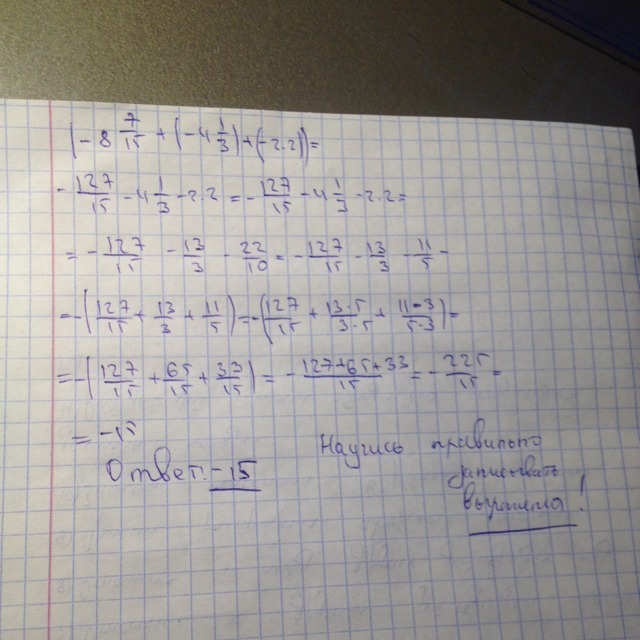 (-8 7/15 + (-4 1/3) + (-2.2)) =
- 127/15 - 4 1/3 - 2.2 = - 127/15 - 4 1/3 - 2.2 =
= - 127/15 - 13/3 - 22/10 = - 127/15 - 13/3 - 11/5 =
= -(127/15 + 13/3 + 11/5) = -(127/15 + 13·5/3·5 + 11·3/5·3) =
= -(127/15 + 65/15 + 33/15) = - 127+65+33/15 = - 225/15 =
= -15
Ответ: -15
Научись правильно
записывать
выражения!